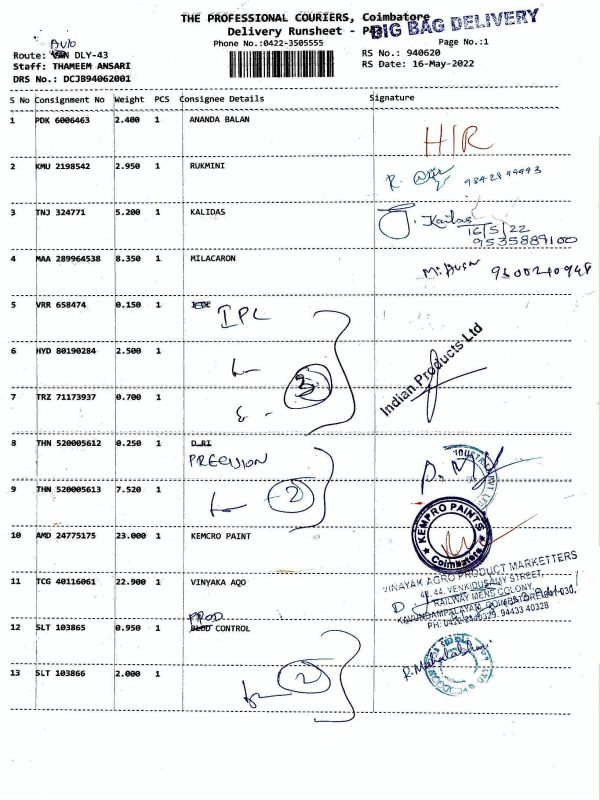 THE PROFESSIONAL COURIERS, Coimbatore
BIG BAG DELIVERY
Delivery Runsheet -
Phone No.:0422-3505555
Page No.:1
Route: DLY-43
RS No.: 940620
Staff: THAMEEM ANSARI
RS Date: 16-May-2022
DRS No.: DCJB94062001
S No Consignment No Weight PCS Consignee Details Signature
1 PDK 6006463 2.400 1 ANANDA BALAN
H/R
2 KMU 2198542 2.950 1 RUKMINI
R.
3 TNJ 324771 5.200 1 KALIDAS
J. Kailas
16/5/22
9535889100
4 MAA 289964538 8.350 1 MILACARON
9600210948
5 VRR 658474 0.150 1 IPL
6 HYD 80190284 2.500 1
3
Indian Products Ltd
7 TRZ 71173937 0.700 1
8 THN 520005612 0.250 1 D_RI
PRECISION
9 THN 520005613 7.520 1
2
10 AMD 24775175 23.000 1 KEMCRO PAINT
KEMPRO PAINTS
Coimbatore
11 TCG 40116061 22.900 1 VINYAKA AQO
VINAYAK AGRO PRODUCT MARKETTERS
42, 44, VENKIDUSAMY STREET,
RAILWAY MENS COLONY,
KAVUNDAMPALAYAM, COIMBATORE-641 030.
94433 40328
PROD
12 SLT 103865 0.950 1 CONTROL
13 SLT 103866 2.000 1
2